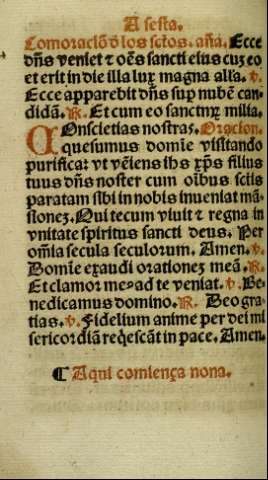 A sesta.
Comoraciõ d̄ los sctõs. añã. Ecce
dñs veniet ⁊ oẽs sancti eius cuȝ eo
et erit in die illa lux magna alla. v.
Ecce apparebit dñs sup nubẽ can-
didã. R. Et cum eo sanctoꝝ milia.
COnscietias nostras. Oracion.
quesumus domie visitando
purifica: vt vẽiens ihs xp̄s filius
tuus dñs noster cum oĩbus sctis
paratam sibi in nobis inueniat mã-
sioneȝ. Qui tecum viuit ⁊ regna in
vnitate spiritus sancti deus. Per
oĩa secula seculorum. Amen. v.
Domie exaudi orationeȝ meã. R.
Et clamor me⁹ ad te veniat. v. Be-
nedicamus domino. R. Deo gra-
tias. v. Fidelium anime per dei mi
sericordiam reqescãt in pace. Amen.
¶ Aqui comiença nona.